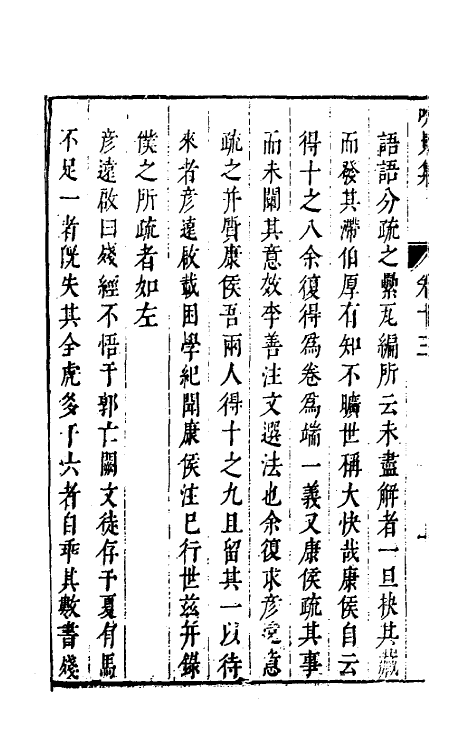 卷十三
語語分疏之鱉瓦編所云未盡解者一旦抉其藏
而發其滯伯厚有知不曠世稱大快哉康侯自云
得十之八余復得為卷為端一義又康侯疏其事
而未闡其意效李善注文選法也余復求彥遠意
疏之并質康侯吾兩人得十之九且留其一以待
來者彥遠啟載困學紀聞康侯注已行世茲并錄
僕之所疏者如左
彥遠啟曰殘經不悟于郭亡闕文徒存于夏有馬
不足一者旣失其全虎多于六者自乖其數書殘